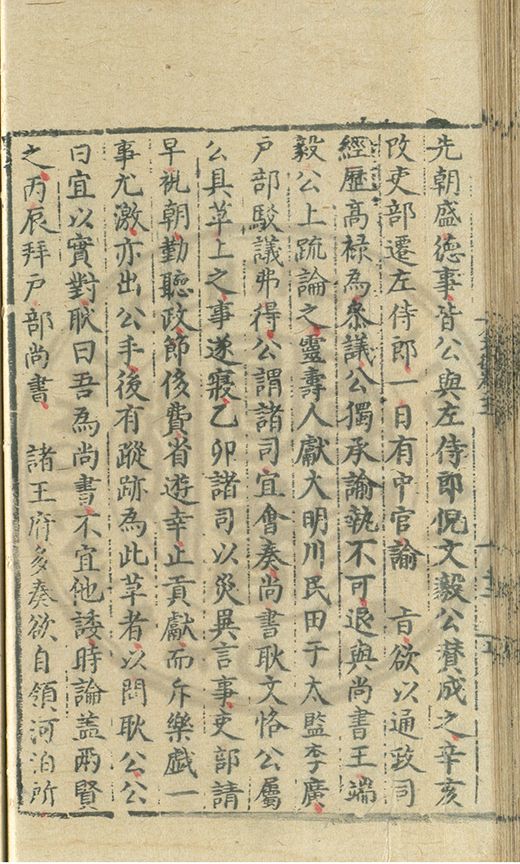 先朝盛德事皆公與左侍郎倪文毅公賛成之辛亥
改吏部遷左侍郎一日有中官諭 旨欲以通政司
經歷高禄為叅議公獨承諭執不可退與尚書王端
毅公上疏論之靈壽人獻大明川民田于太監李廣
戸部駁議弗得公謂諸司宜會奏尚書耿文恪公屬
公具草上之事遂寢乙卯諸司以災異言事吏部請
早視朝勤聽政節侈費省遊幸止貢獻而斥樂戲一
事尤激亦出公手後有蹤跡為此草者以問耿公公
曰宜以實對耿曰吾為尚書不宜他諉時論盖兩賢
之丙辰拜戸部尚書 諸王府多奏欲自領河泊所